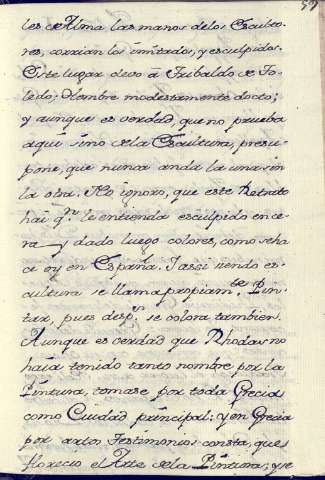 les de Alma las manos de los Esculto-
res, corrian los imitados, y esculpidos.
Este lugar devo à Tribaldo de To-
ledo; Hombre modestamente docto;
y aunque es verdad, que no prueba
aqui sino de la Escultura, presu-
pone, que nunca anda la una sin
la otra. No ignoro, que este Retrato
hai qⁿ le entienda esculpido en ce-
ra y dado luego colores, como se ha-
ce oy en España. I assi siendo es-
cultura se llama propiamᵗᵉ Pin-
tar, pues despˢ se colora tambien.
Aunque es verdad que Rhodas no
haia tenido tanto nombre por la
Pintura, tomase por toda Grecia
como Ciudad principal: y en Grecia
por artos Testimonios consta, que
florecio el Arte de la Pintura; y se